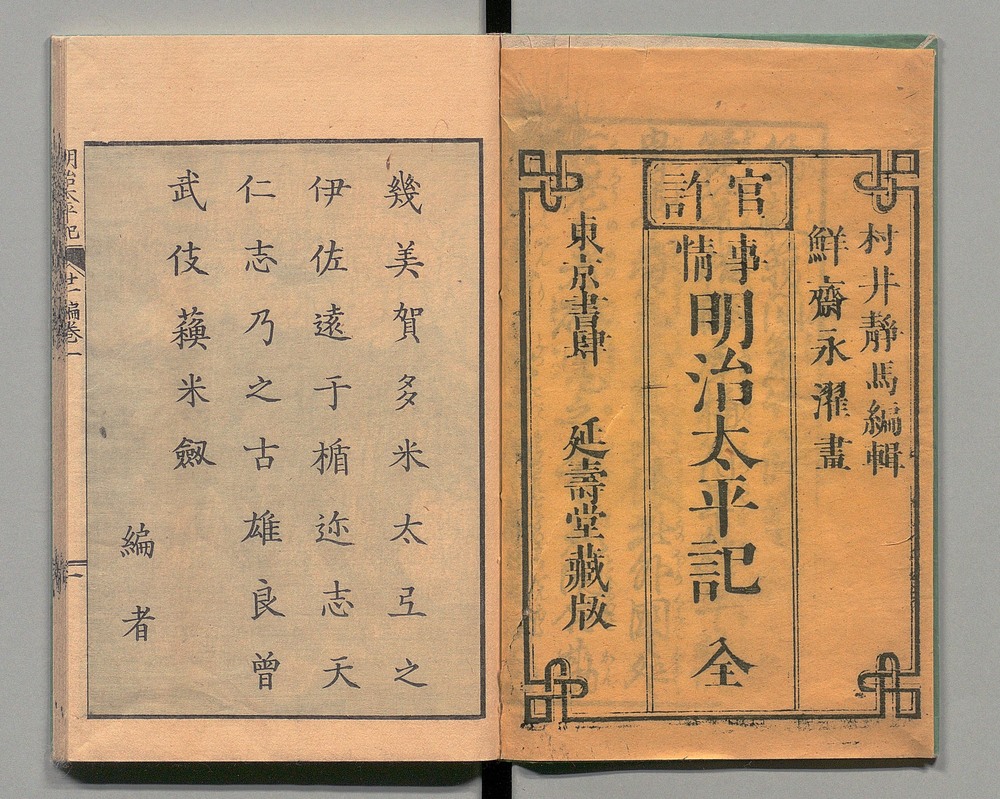 村井靜馬編輯
鮮齋永濯畫
官許
事情明治太平記　全
東京書肆　延壽堂藏版
幾美賀多米太弖之
伊佐遠于楯迩志天
仁志乃之古雄良曾
武伎蘓米劔
編者
明治太平記
廿一編卷一